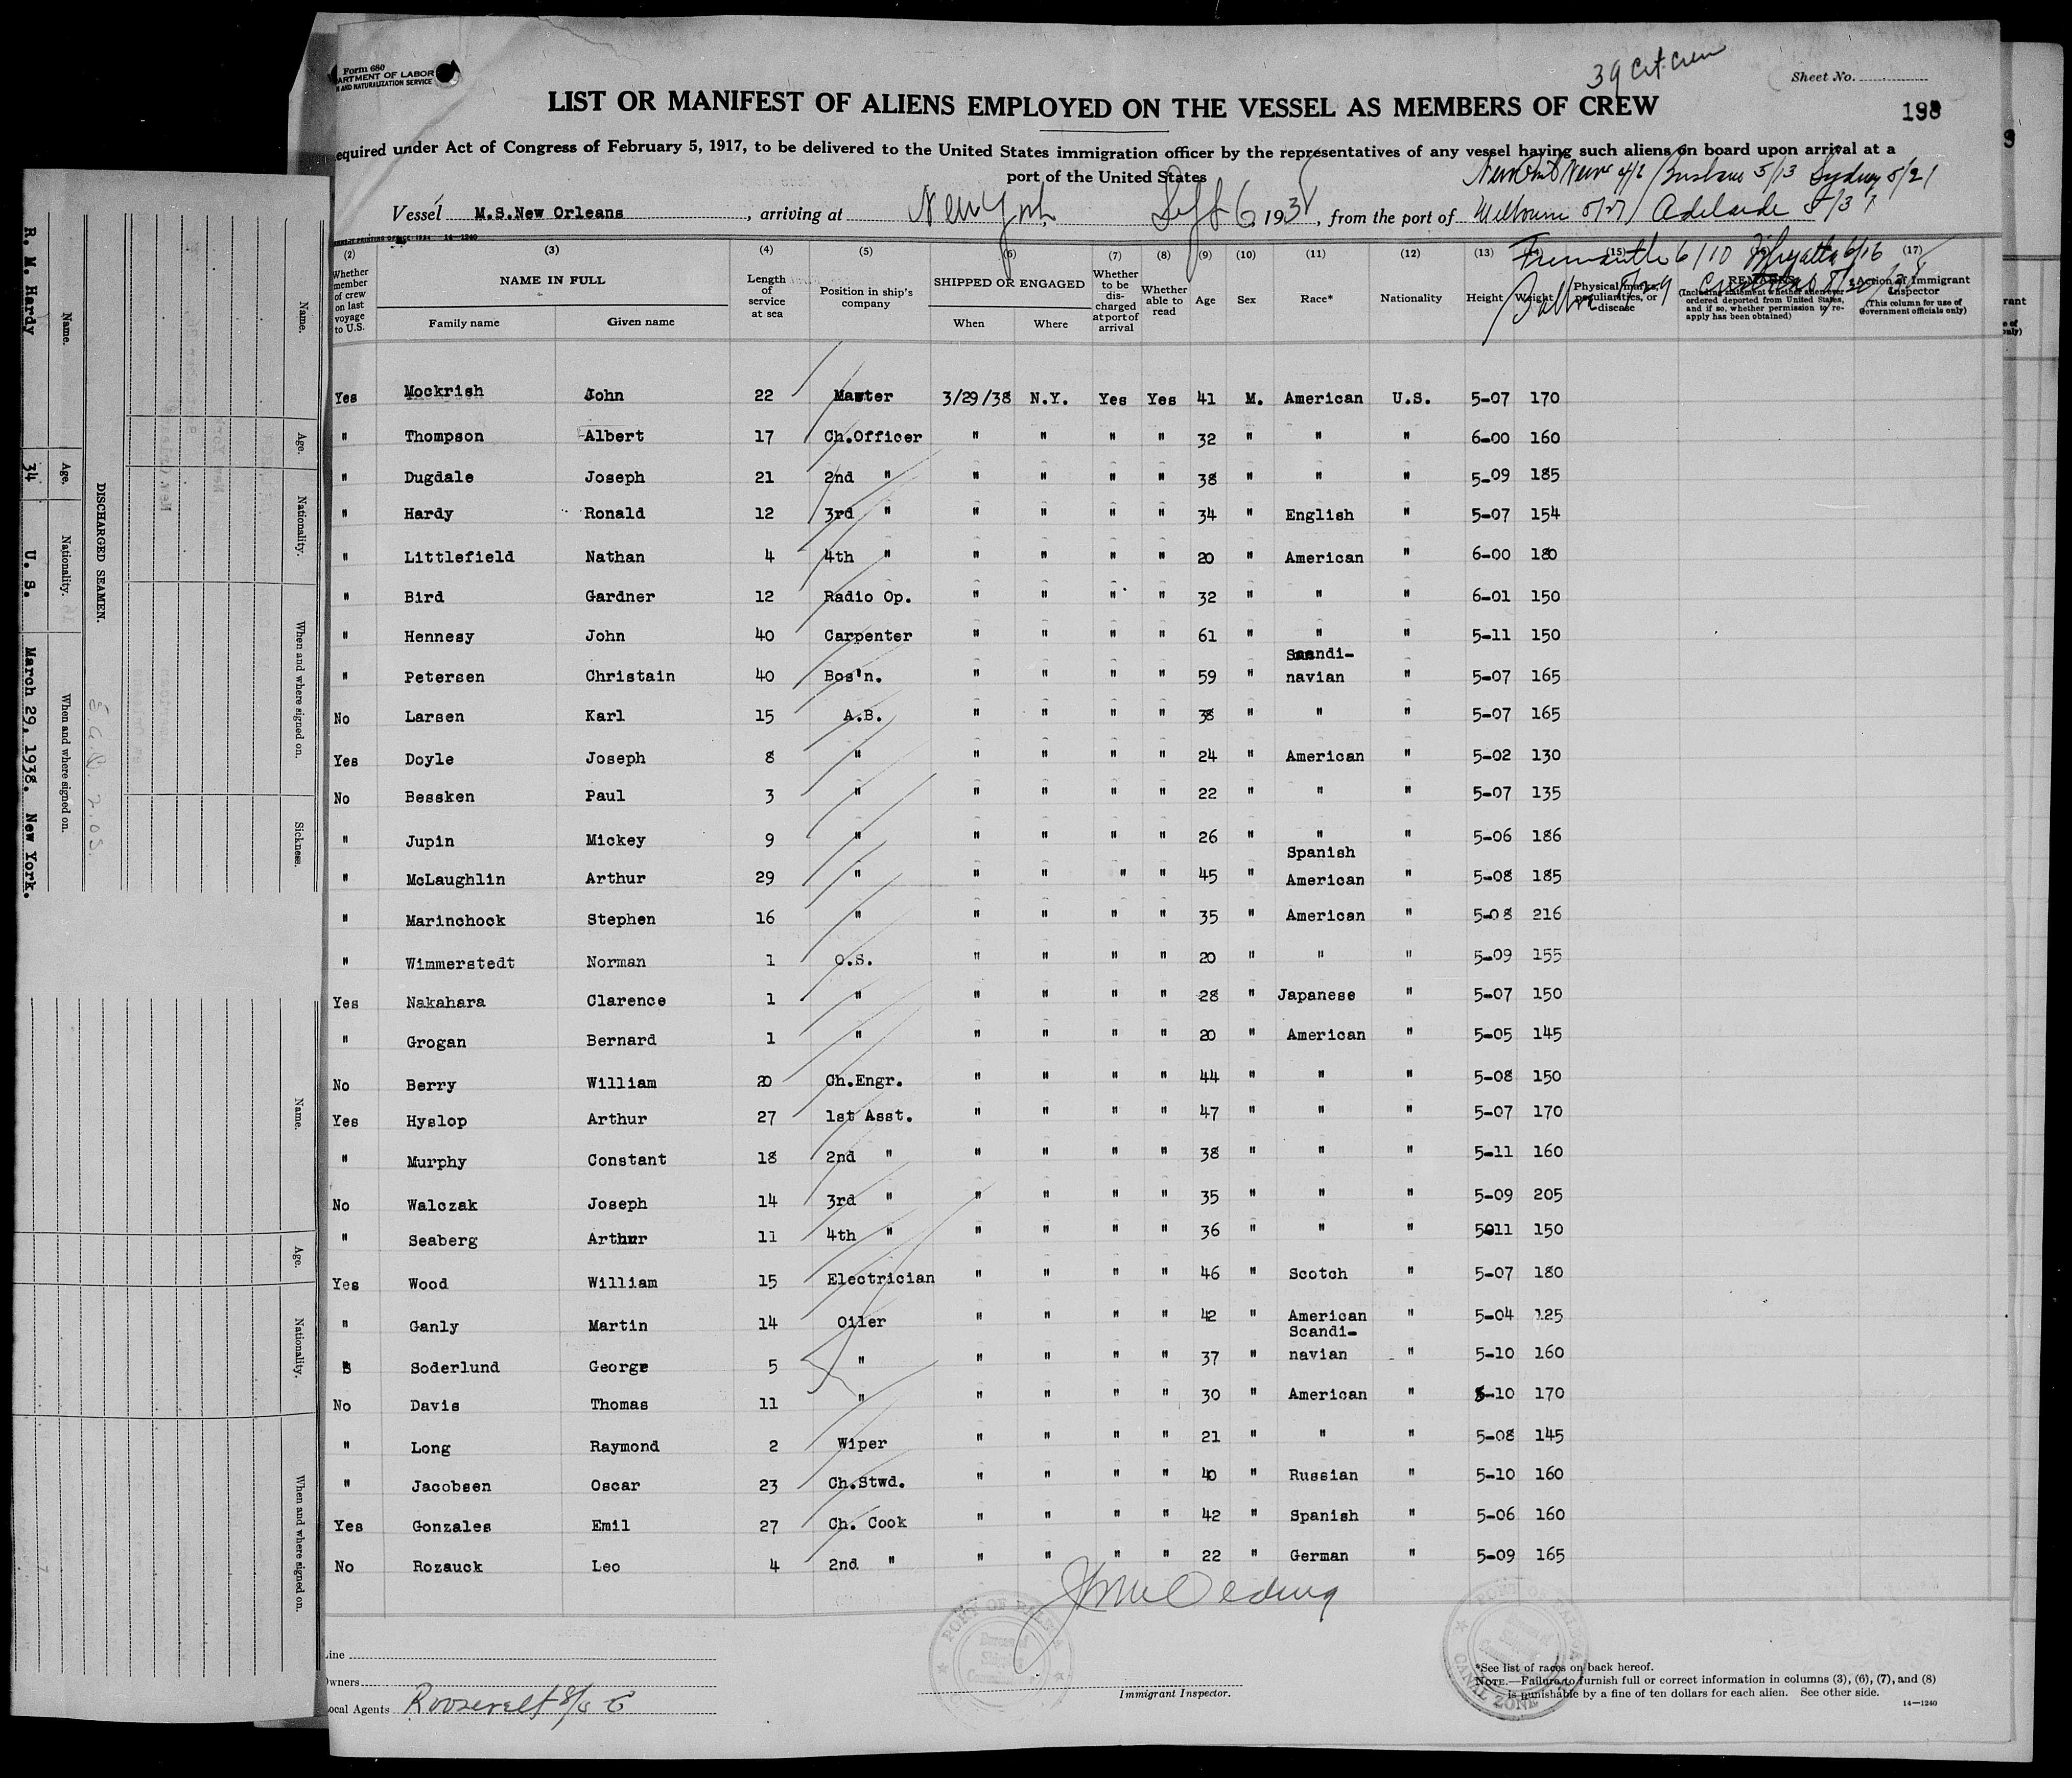 Form 680
ARTMENT OF LABOR
N AND NATURALIZATION SERVICE
Sheet No.
LIST OR MANIFEST OF ALIENS EMPLOYED ON THE VESSEL AS MEMBERS OF CREW
198
equired under Act of Congress of February 5, 1917, to be delivered to the United States immigration officer by the representatives of any vessel having such aliens on board upon arrival at a
port of the United States
Brisbane 5/13 Sydney 5/21
Vessel M.S.New Orleans, arriving at New York 6 1938, from the port of Melbourne 5/27 Adelaide
Fremantle 6/10
(2) (3) (4) (5) (6) (7) (8) (9) (10) (11) (12) (13) (15) (17)
Whether member of crew on last voyage to U.S.
NAME IN FULL
Family name Given name
Length of service at sea
Position in ship's company
SHIPPED OR ENGAGED
When Where
Whether to be discharged at port of arrival
Whether able to read
Age
Sex
Race*
Nationality
Height
Weight
Physical marks, peculiarities, or disease
REMARKS
(Including statement whether alien ever ordered deported from United States, and if so, whether permission to reapply has been obtained)
Action of Immigrant Inspector
(This column for use of Government officials only)
Yes Mockrish John 22 Master 3/29/38 N.Y. Yes Yes 41 M. American U.S. 5-07 170
" Thompson Albert 17 Ch.Officer " " " " 32 " " " 6-00 160
" Dugdale Joseph 21 2nd " " " " " 38 " " " 5-09 185
" Hardy Ronald 12 3rd " " " " " 34 " English " 5-07 154
" Littlefield Nathan 4 4th " " " " " 20 " American " 6-00 180
" Bird Gardner 12 Radio Op. " " " " 32 " " " 6-01 150
" Hennesy John 40 Carpenter " " " " 61 " " " 5-11 150
" Petersen Christain 40 Bos'n. " " " " 59 " Scandi-navian " 5-07 165
No Larsen Karl 15 A.B. " " " " 38 " " " 5-07 165
Yes Doyle Joseph 8 " " " " " 24 " American " 5-02 130
No Bessken Paul 3 " " " " " 22 " " " 5-07 135
" Jupin Mickey 9 " " " " " 26 " " " 5-06 186
" McLaughlin Arthur 29 " " " " " 45 " Spanish American " 5-08 185
" Marinchock Stephen 16 " " " " " 35 " American " 5-08 216
" Wimmerstedt Norman 1 O.S. " " " " 20 " " " 5-09 155
Yes Nakahara Clarence 1 " " " " " 28 " Japanese " 5-07 150
" Grogan Bernard 1 " " " " " 20 " American " 5-05 145
No Berry William 20 Ch.Engr. " " " " 44 " " " 5-08 150
Yes Hyslop Arthur 27 1st Asst. " " " " 47 " " " 5-07 170
" Murphy Constant 18 2nd " " " " " 38 " " " 5-11 160
No Walczak Joseph 14 3rd " " " " " 35 " " " 5-09 205
" Seaberg Arthur 11 4th " " " " " 36 " " " 5011 150
Yes Wood William 15 Electrician " " " " 46 " Scotch " 5-07 180
" Ganly Martin 14 Oiler " " " " 42 " American " 5-04 125
Soderlund George 5 " " " " " 37 " Scandi-navian " 5-10 160
No Davis Thomas 11 " " " " " 30 " American " 5-10 170
" Long Raymond 2 Wiper " " " " 21 " " " 5-08 145
" Jacobsen Oscar 23 Ch.Stwd. " " " " 40 " Russian " 5-10 160
Yes Gonzales Emil 27 Ch. Cook " " " " 42 " Spanish " 5-06 160
No Rozauck Leo 4 2nd " " " " " 22 " German " 5-09 165
Line
Owners
ocal Agents Roosevelt
Immigrant Inspector.
PORT OF BALBOA
CANAL ZONE
*See list of races on back hereof.
NOTE.—Failure to furnish full or correct information in columns (3), (6), (7), and (8)
is punishable by a fine of ten dollars for each alien. See other side.
14—1240
DISCHARGED SEAMEN.
Name. Age. Nationality. When and where signed on.
R. M. Hardy 34 U. S. March 29, 1938. New York.
Name. Age. Nationality. When and where signed on. Sickness.
Name. Age. Nationality. When and where signed on.